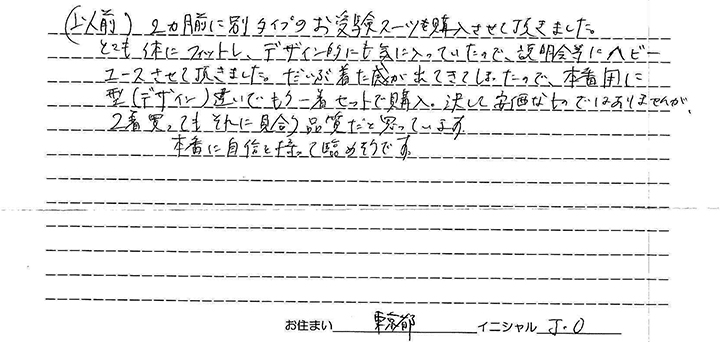 (以前) 2ヵ月前に別タイプのお受験スーツを購入させて頂きました。
とても体にフィットし、デザイン的にも気に入っていたので、説明会等にヘビー
ユースさせて頂きました。だいぶ着た感が出てきてしまったので、本番用に
型(デザイン)違いでもう一着セットで購入。決して安価なものではありませんが、
2着買ってもそれに見合う品質だと思っています。
本番に自信を持って臨めそうです。
お住まい 東京都 イニシャル J.O